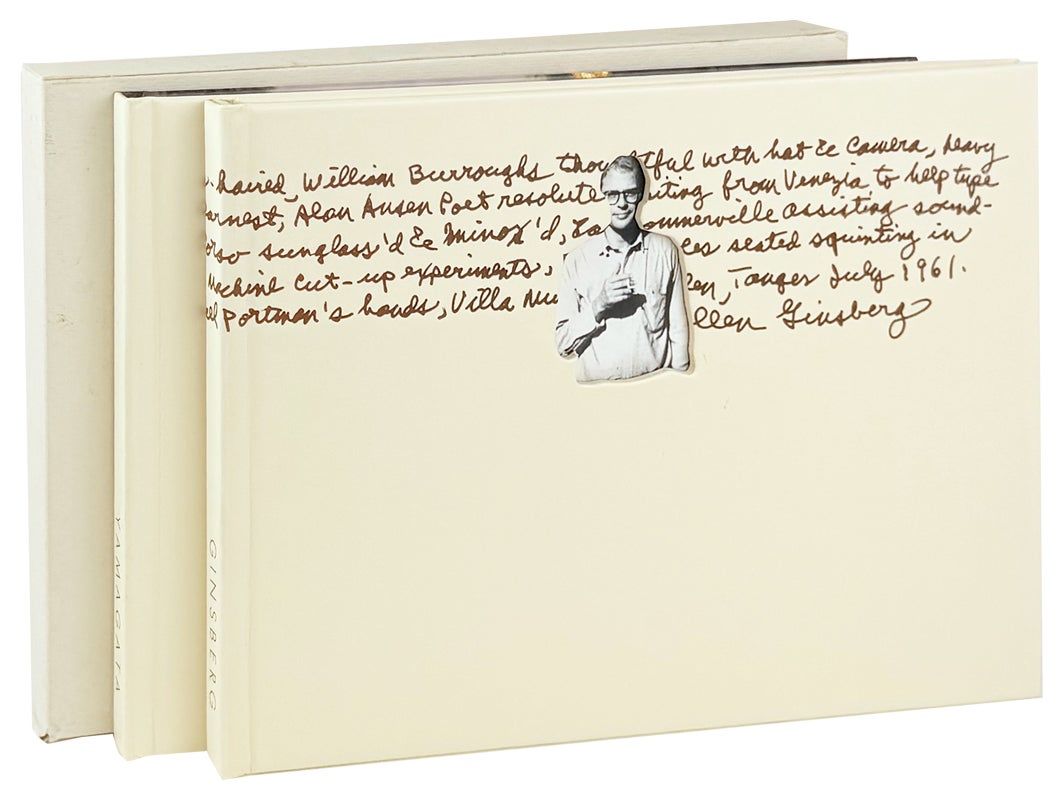 haired, William Burroughs thoughtful with hat & camera, heavy
Alan Ansen Poet resolute iting from Venezia to help type
orso sunglass'd & Minox'd, ommerville assisting sound-
Machine cut-up experiments, ces seated squinting in
Portman's hands, Villa Mu en, Tanger July 1961.
llen Ginsberg
YAMAGATA
GINSBERG